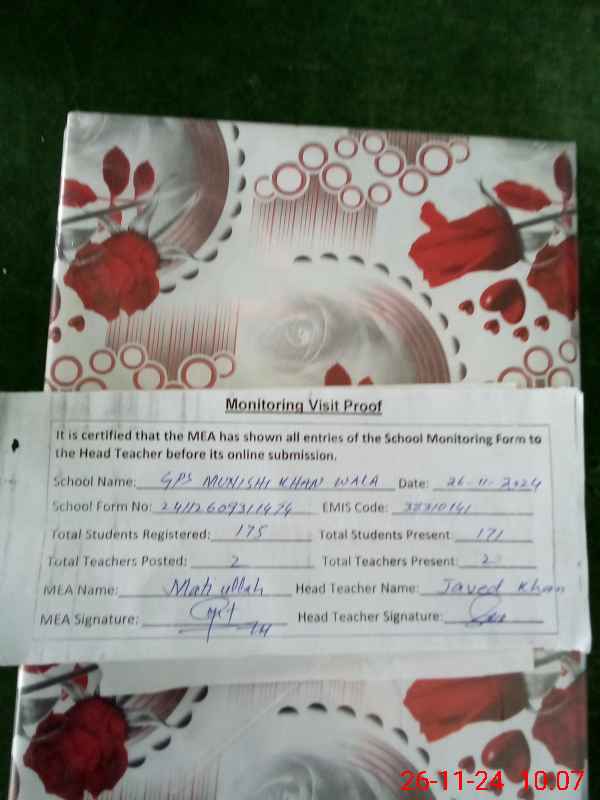 Monitoring Visit Proof
It is certified that the MEA has shown all entries of the School Monitoring Form to
the Head Teacher before its online submission.
School Name: GPS MUNISHI KHAN WALA Date: 26-11-2024
School Form No: 24112609311474 EMIS Code: 38310141
Total Students Registered: 175 Total Students Present: 171
Total Teachers Posted: 2 Total Teachers Present: 2
MEA Name: Mah ullah Head Teacher Name: Javed Khan
MEA Signature: Head Teacher Signature:
26-11-24 10:07